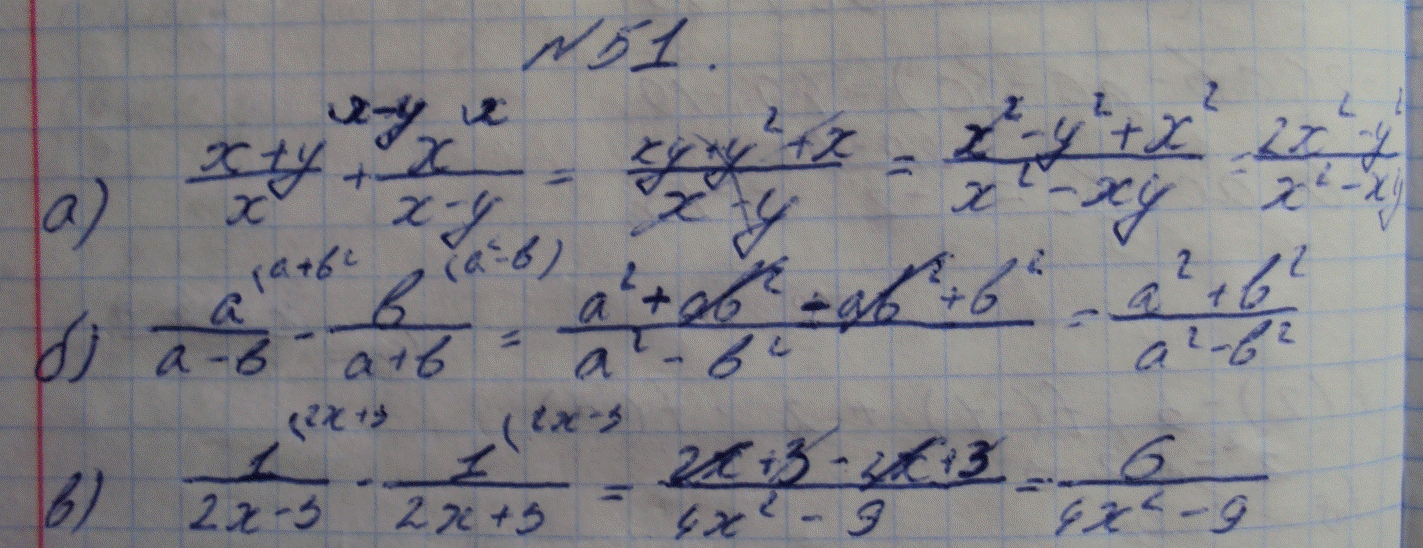 №51.
а) (x+y)/x + x/(x-y) = (xy+y²+x)/(x-y) = (x²-y²+x²)/(x²-xy) = (2x²-y²)/(x²-xy)
б) a/(a-b) - b/(a+b) = (a²+ab²-ab²+b²)/(a²-b²) = (a²+b²)/(a²-b²)
в) 1/(2x-3) - 1/(2x+3) = (2x+3-2x+3)/(4x²-9) = 6/(4x²-9)